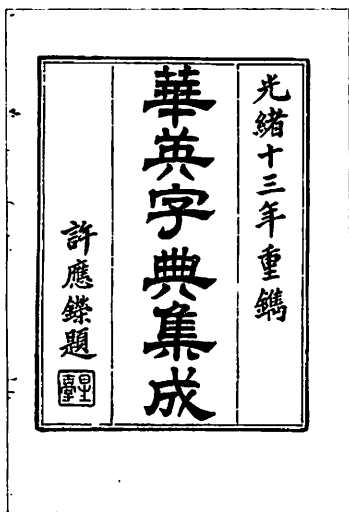 光緒十三年重鐫
華英字典集成
許應鑅題
星臺